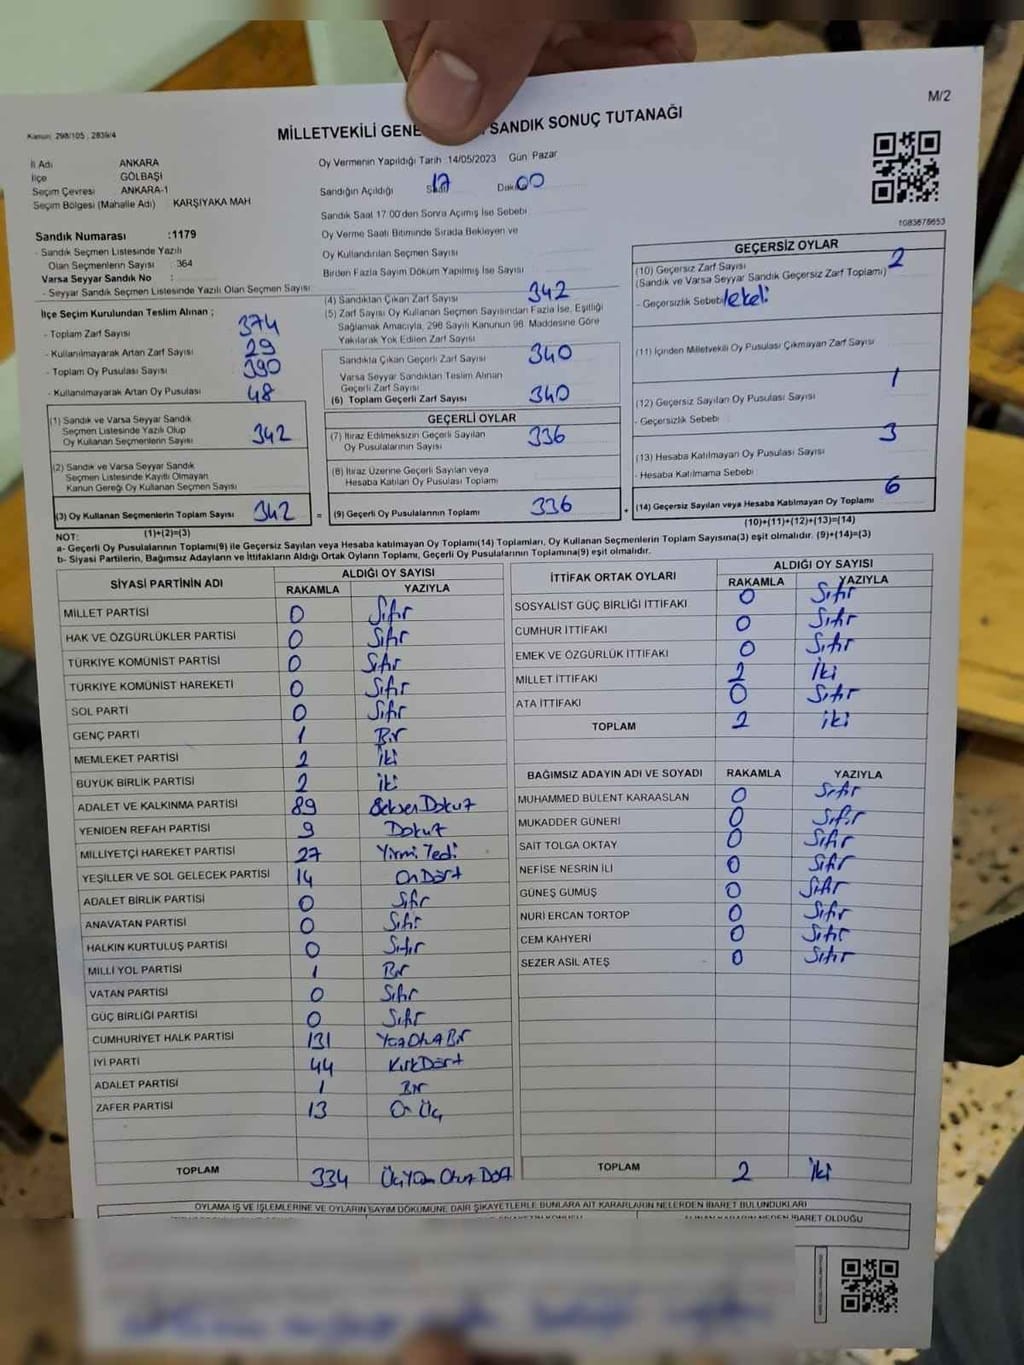 M/2
Kanun: 298/105 ; 2839/4
MİLLETVEKİLİ GENE SANDIK SONUÇ TUTANAĞI
İl Adı ANKARA
İlçe GÖLBAŞI
Seçim Çevresi ANKARA-1
Seçim Bölgesi (Mahalle Adı) KARŞIYAKA MAH
Oy Vermenin Yapıldığı Tarih :14/05/2023 Gün: Pazar
Sandığın Açıldığı 17 00
Sandık Saat 17.00'den Sonra Açımış İse Sebebi
Oy Verme Saati Bitiminde Sırada Bekleyen ve
Oy Kullandırılan Seçmen Sayısı
Birden Fazla Sayım Döküm Yapılmış İse Sayısı
1083678653
Sandık Numarası :1179
- Sandık Seçmen Listesinde Yazılı
Olan Seçmenlerin Sayısı : 364
Varsa Seyyar Sandık No :
- Seyyar Sandık Seçmen Listesinde Yazılı Olan Seçmen Sayısı:
İlçe Seçim Kurulundan Teslim Alınan ;
- Toplam Zarf Sayısı 374
- Kullanılmayarak Artan Zarf Sayısı 29
- Toplam Oy Pusulası Sayısı 390
- Kullanılmayarak Artan Oy Pusulası 48
(1) Sandık ve Varsa Seyyar Sandık
Seçmen Listesinde Yazılı Olup
Oy Kullanan Seçmenlerin Sayısı 342
(2) Sandık ve Varsa Seyyar Sandık
Seçmen Listesinde Kayıtlı Olmayan
Kanun Gereği Oy Kullanan Seçmen Sayısı
(3) Oy Kullanan Seçmenlerin Toplam Sayısı 342
(1)+(2)=(3)
(4) Sandıktan Çıkan Zarf Sayısı 342
(5) Zarf Sayısı Oy Kullanan Seçmen Sayısından Fazla İse, Eşitliği
Sağlamak Amacıyla, 298 Sayılı Kanunun 98. Maddesine Göre
Yakılarak Yok Edilen Zarf Sayısı
Sandıkta Çıkan Geçerli Zarf Sayısı 340
Varsa Seyyar Sandıktan Teslim Alınan
Geçerli Zarf Sayısı
(6) Toplam Geçerli Zarf Sayısı 340
GEÇERLİ OYLAR
(7) İtiraz Edilmeksizin Geçerli Sayılan
Oy Pusulalarının Sayısı 336
(8) İtiraz Üzerine Geçerli Sayılan veya
Hesaba Katılan Oy Pusulası Toplamı
= (9) Geçerli Oy Pusulalarının Toplamı 336
GEÇERSİZ OYLAR
(10) Geçersiz Zarf Sayısı 2
(Sandık ve Varsa Seyyar Sandık Geçersiz Zarf Toplamı)
- Geçersizlik Sebebi lekeli
(11) İçinden Milletvekili Oy Pusulası Çıkmayan Zarf Sayısı
1
(12) Geçersiz Sayılan Oy Pusulası Sayısı
- Geçersizlik Sebebi
3
(13) Hesaba Katılmayan Oy Pusulası Sayısı
- Hesaba Katılmama Sebebi
+ (14) Geçersiz Sayılan veya Hesaba Katılmayan Oy Toplamı 6
(10)+(11)+(12)+(13)=(14)
NOT:
a- Geçerli Oy Pusulalarının Toplamı(9) ile Geçersiz Sayılan veya Hesaba katılmayan Oy Toplamı(14) Toplamları, Oy Kullanan Seçmenlerin Toplam Sayısına(3) eşit olmalıdır. (9)+(14)=(3)
b- Siyasi Partilerin, Bağımsız Adayların ve İttifakların Aldığı Ortak Oyların Toplamı, Geçerli Oy Pusulalarının Toplamına(9) eşit olmalıdır.
SİYASİ PARTİNİN ADI ALDIĞI OY SAYISI
RAKAMLA YAZIYLA
MİLLET PARTİSİ 0 Sıfır
HAK VE ÖZGÜRLÜKLER PARTİSİ 0 Sıfır
TÜRKİYE KOMÜNİST PARTİSİ 0 Sıfır
TÜRKİYE KOMÜNİST HAREKETİ 0 Sıfır
SOL PARTİ 0 Sıfır
GENÇ PARTİ 1 Bir
MEMLEKET PARTİSİ 2 İki
BÜYÜK BİRLİK PARTİSİ 2 iki
ADALET VE KALKINMA PARTİSİ 89 Seksen Dokuz
YENİDEN REFAH PARTİSİ 9 Dokuz
MİLLİYETÇİ HAREKET PARTİSİ 27 Yirmi Yedi
YEŞİLLER VE SOL GELECEK PARTİSİ 14 On Dört
ADALET BİRLİK PARTİSİ 0 Sıfır
ANAVATAN PARTİSİ 0 Sıfır
HALKIN KURTULUŞ PARTİSİ 0 Sıfır
MİLLİ YOL PARTİSİ 1 Bir
VATAN PARTİSİ 0 Sıfır
GÜÇ BİRLİĞİ PARTİSİ 0 Sıfır
CUMHURİYET HALK PARTİSİ 131
İYİ PARTİ 44 Kırk Dört
ADALET PARTİSİ 1 Bir
ZAFER PARTİSİ 13 On Üç
TOPLAM 334
İTTİFAK ORTAK OYLARI ALDIĞI OY SAYISI
RAKAMLA YAZIYLA
SOSYALİST GÜÇ BİRLİĞİ İTTİFAKI 0 Sıfır
CUMHUR İTTİFAKI 0 Sıfır
EMEK VE ÖZGÜRLÜK İTTİFAKI 0 Sıfır
MİLLET İTTİFAKI 2 İki
ATA İTTİFAKI 0 Sıfır
TOPLAM 2 iki
BAĞIMSIZ ADAYIN ADI VE SOYADI RAKAMLA YAZIYLA
MUHAMMED BÜLENT KARAASLAN 0 Sıfır
MUKADDER GÜNERİ 0 Sıfır
SAİT TOLGA OKTAY 0 Sıfır
NEFİSE NESRİN İLİ 0 Sıfır
GÜNEŞ GÜMÜŞ 0 Sıfır
NURİ ERCAN TORTOP 0 Sıfır
CEM KAHYERİ 0 Sıfır
SEZER ASİL ATEŞ 0 Sıfır
TOPLAM 2 İki
OYLAMA İŞ VE İŞLEMLERİNE VE OYLARIN SAYIM DÖKÜMÜNE DAİR ŞİKAYETLERLE BUNLARA AİT KARARLARIN NELERDEN İBARET BULUNDUKLARI